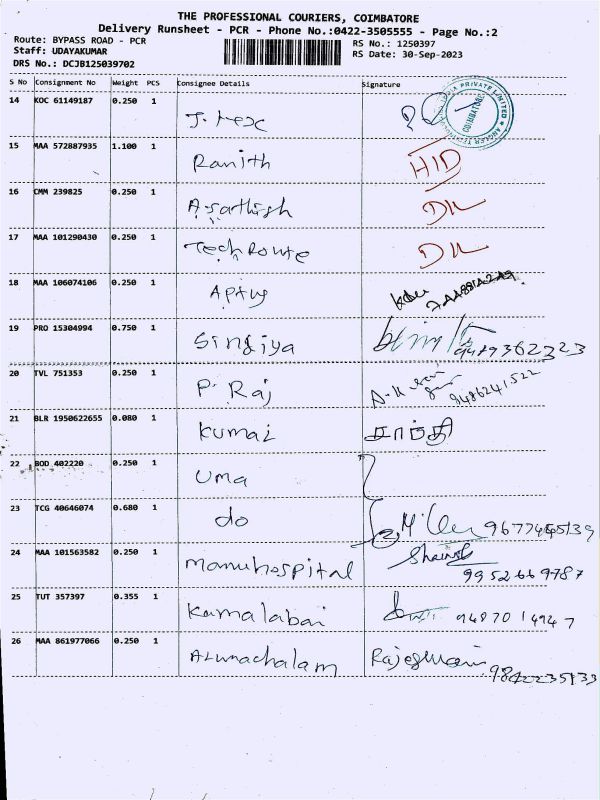 THE PROFESSIONAL COURIERS, COIMBATORE
Delivery Runsheet - PCR - Phone No.:0422-3505555 - Page No.:2
Route: BYPASS ROAD - PCR
RS No.: 1250397
Staff: UDAYAKUMAR
RS Date: 30-Sep-2023
DRS No.: DCJB125039702
S No Consignment No Weight PCS Consignee Details Signature
14 KOC 61149187 0.250 1
15 MAA 572887935 1.100 1 Ranith HID
16 CMM 239825 0.250 1 A.Sathish DIL
17 MAA 101290430 0.250 1 Tech Route DIL
18 MAA 106074106 0.250 1 Aptus
19 PRO 15304994 0.750 1 Singiya 9489362323
20 TVL 751353 0.250 1 P. Raj 9486241522
21 BLR 1950622655 0.080 1 Kumar சாந்தி
22 BOD 402220 0.250 1 Uma
23 TCG 40646074 0.680 1 do
24 MAA 101563582 0.250 1 Manuhospital 9952669787
25 TUT 357397 0.355 1 Kamalabai 9487014947
26 MAA 861977066 0.250 1 Arunachalam Rajeswari 9842235133